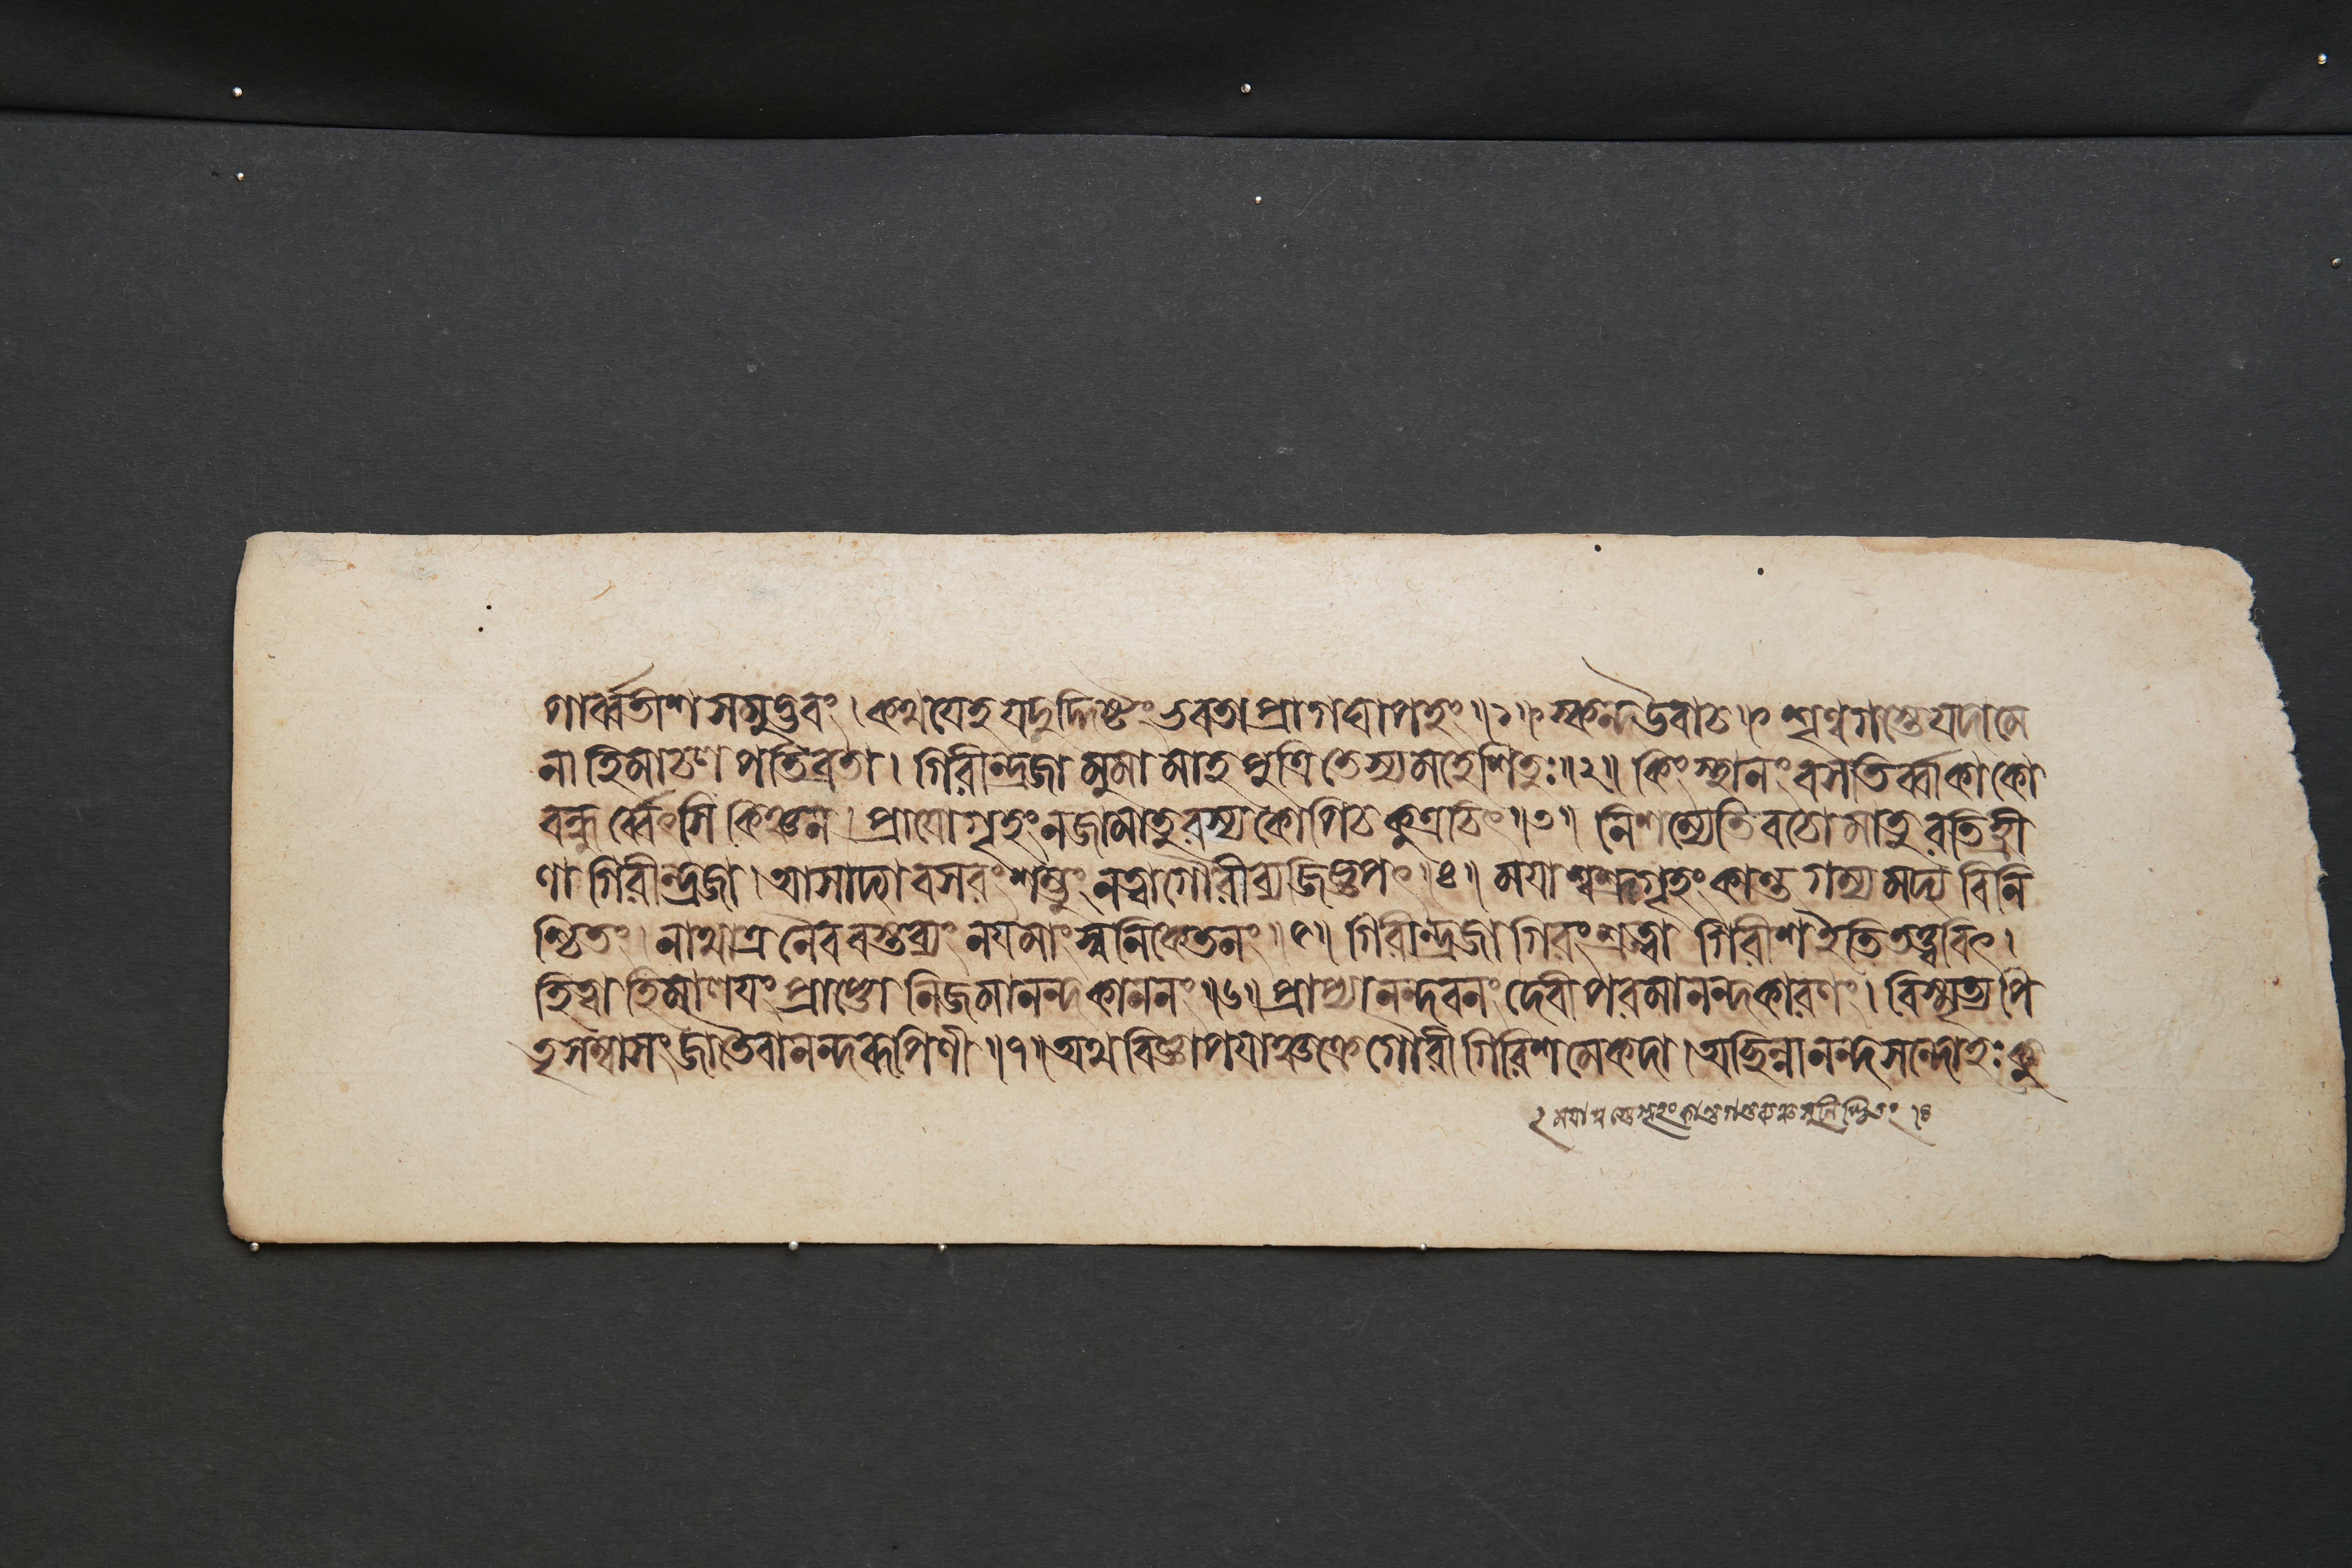 পার্ব্বতীশসমুদ্ভবং । কথয়েহ যদুদ্দিষ্টং ভবতা প্রাগঘাপহং ॥১॥ স্কন্দ উবাচ ॥ শৃণ্বগস্ত্যে যদা মে
না হিমাচলপতিব্রতা । গিরীন্দ্রজামুমামাহ পুত্রি তেস্য মহেশিতুঃ ॥২॥ কিং স্থানং বসতির্ব্বা কা কো
বন্ধুর্ব্বেৎসি কিঞ্চন । প্রায়ো গৃহং ন জামাতুরস্য কোপি চ কুত্রচিৎ ॥৩॥ নিশম্যেতি বচো মাতুরতিহ্রী
ণা গিরীন্দ্রজা । আসাদ্যাবসরং শম্ভুং নত্বা গৌরী ব্যজিজ্ঞপৎ ॥৪॥ ময়া শ্বশ্রূগৃহং কান্ত গম্যমদ্য বিনি
শ্চিতং । নাথাত্র নৈব বস্তব্যং নয় মাং স্বনিকেতনং ॥৫॥ গিরীন্দ্রজাগিরং শ্রুত্বা গিরীশ ইতি তত্ত্ববিৎ ।
হিত্বা হিমালয়ং প্রাপ্তো নিজমানন্দকাননং ॥৬॥ প্রাপ্যানন্দবনং দেবী পরমানন্দকারণং । বিস্মৃত্য পি
তৃসম্বাসং জাতৈবানন্দরূপিণী ॥৭॥ অথ বিজ্ঞাপয়াঞ্চক্রে গৌরী গিরিশমেকদা । অচ্ছিন্নানন্দসন্দোহঃ কু